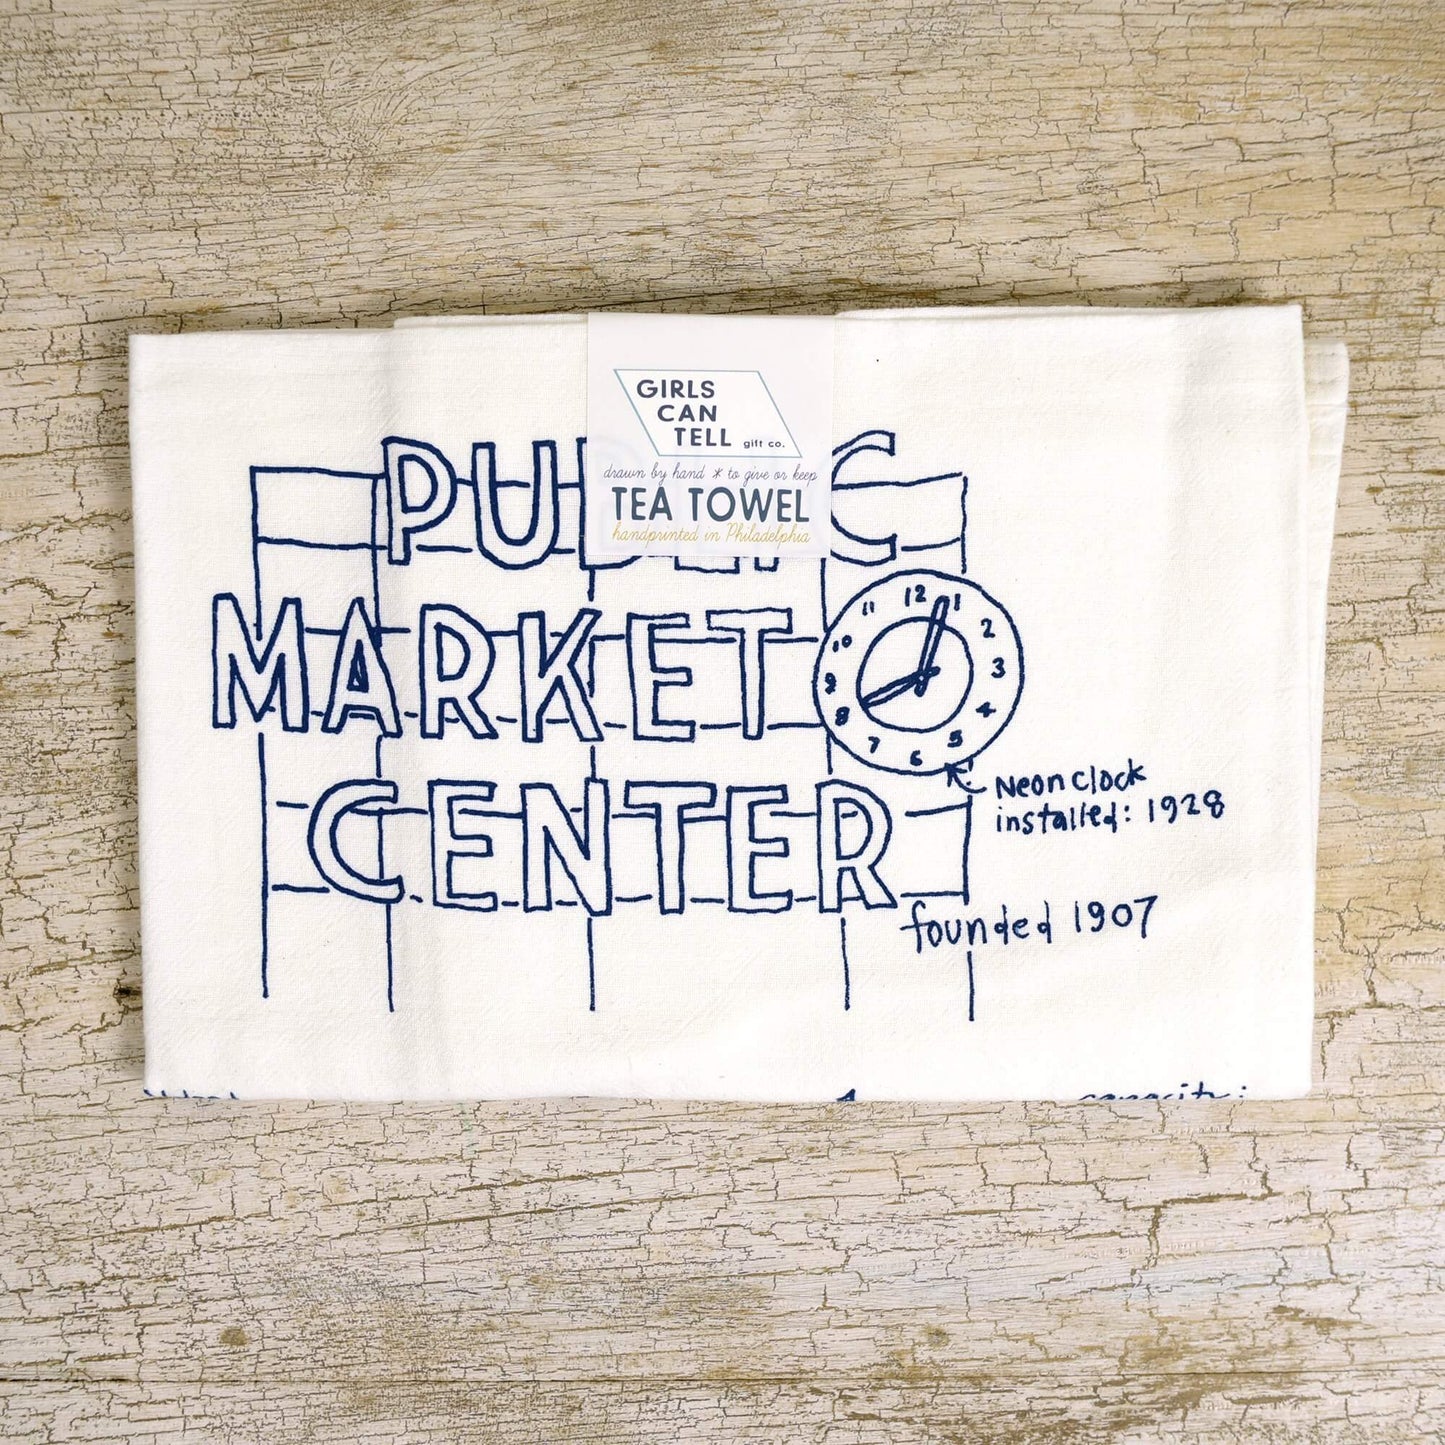 GIRLS
CAN
TELL gift co.
drawn by hand * to give or keep
TEA TOWEL
handprinted in Philadelphia
PUBLIC
MARKET
CENTER
12
1
2
3
4
5
6
7
8
9
10
11
Neon clock
installed: 1928
founded 1907
capacity: